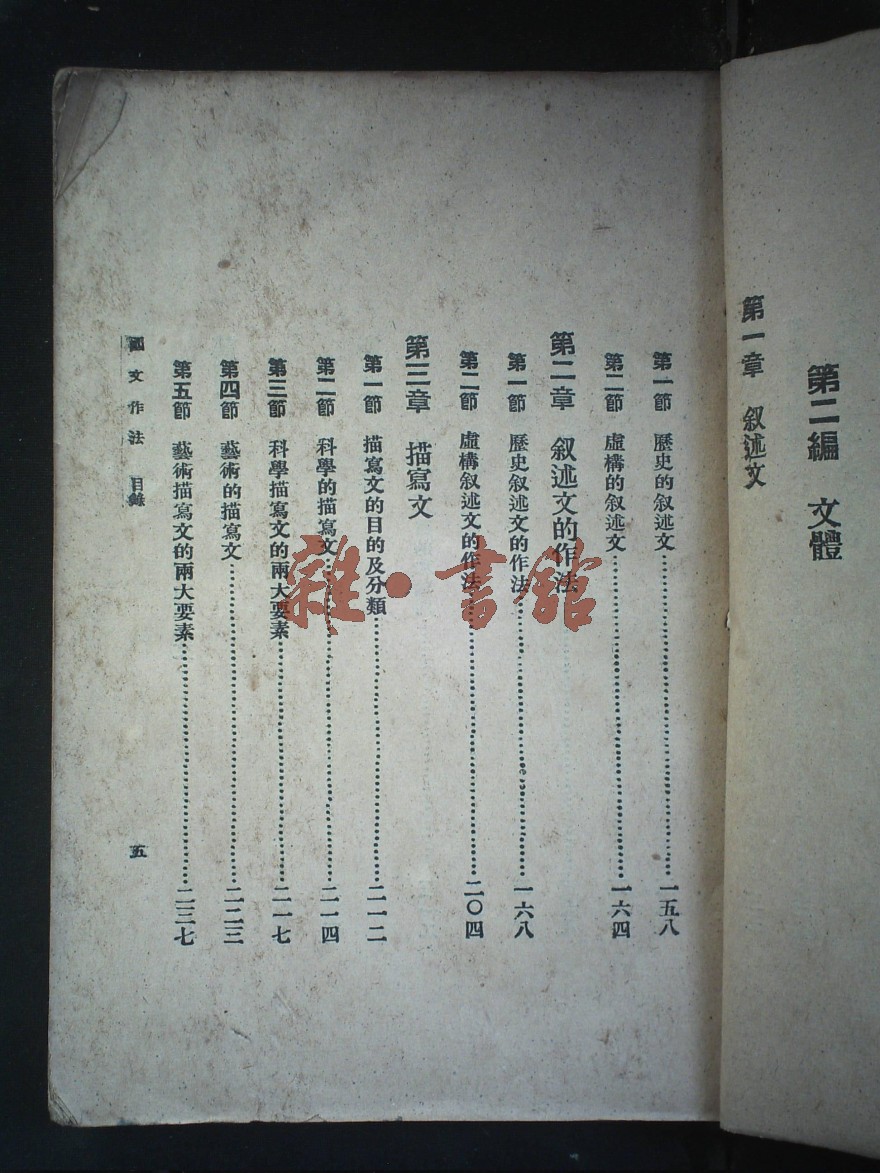 第二編 文體
第一章 叙述文
第一節 歷史的叙述文 一五八
第二節 虛構的叙述文 一六四
第二章 叙述文的作法
第一節 歷史叙述文的作法 一六八
第二節 虛構叙述文的作法 二〇四
第三章 描寫文
第一節 描寫文的目的及分類 二一二
第二節 科學的描寫文 二一四
第三節 科學描寫文的兩大要素 二一七
第四節 藝術的描寫文 二二三
第五節 藝術描寫文的兩大要素 二三七
國文作法 目錄 五
雜·書館